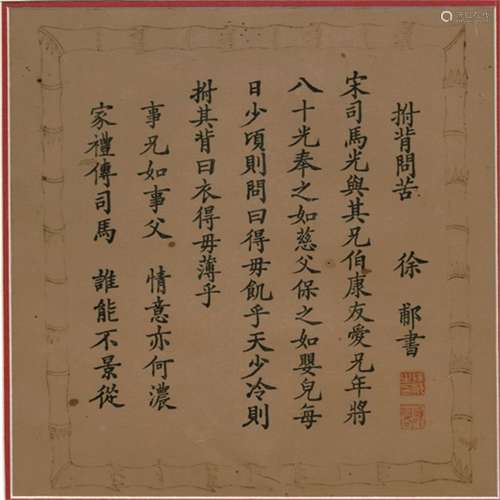 拊背問苦 徐郙書
宋司馬光與其兄伯康友愛兄年將
八十光奉之如慈父保之如嬰兒每
日少頃則問曰得毋飢乎天少冷則
拊其背曰衣得毋薄乎
事兄如事父 情意亦何濃
家禮傳司馬 誰能不景從